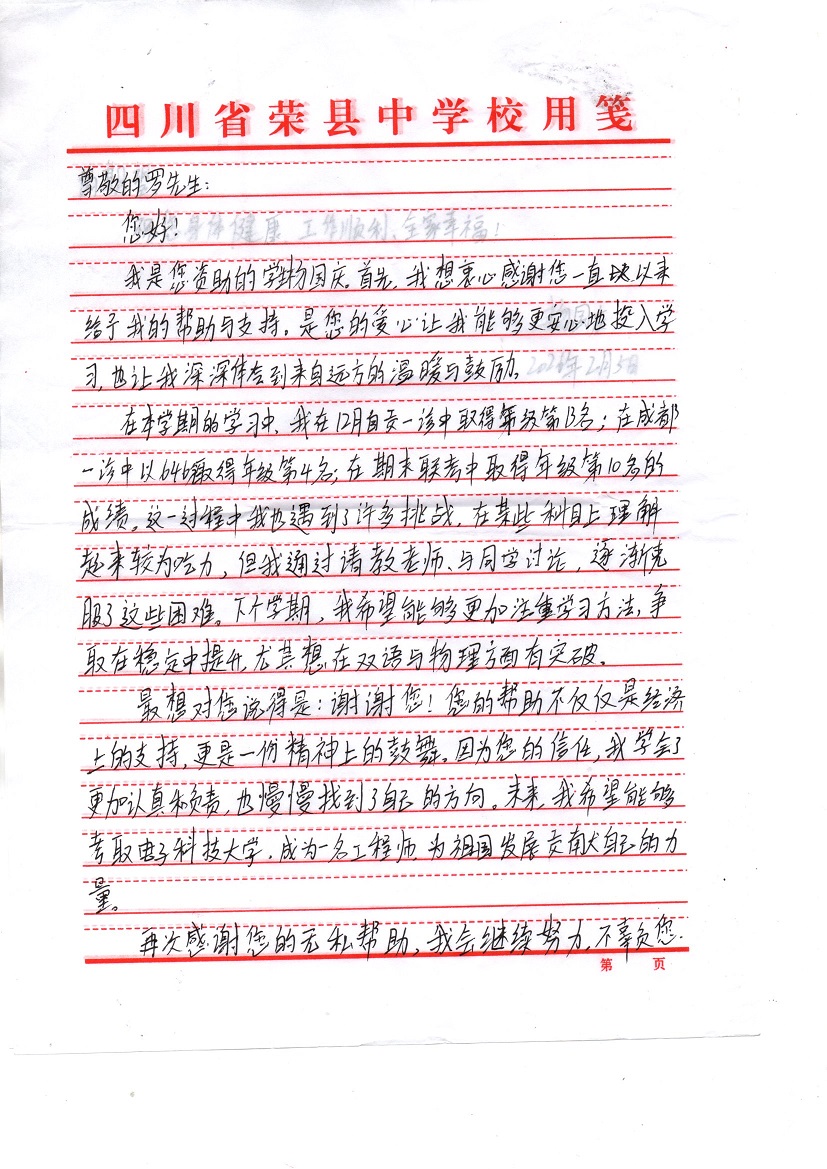 四川省荣县中学校用笺
尊敬的罗先生:
您好!
身体健康、工作顺利、全家幸福!
我是您资助的学生杨国庆。首先,我想衷心感谢您一直以来
给予我的帮助与支持。是您的爱心让我能够更安心地投入学
习,也让我深深体会到来自远方的温暖与鼓励。
2026年2月5日
在本学期的学习中,我在12月自贡一诊中取得年级第13名;在成都
一诊中以646取得年级第4名;在期末联考中取得年级第10名的
成绩。这一过程中我也遇到了许多挑战,在某些科目上理解
起来较为吃力,但我通过请教老师、与同学讨论,逐渐克
服了这些困难。下个学期,我希望能够更加注重学习方法,争
取在稳定中提升,尤其想在双语与物理方面有突破。
最想对您说得是:谢谢您!您的帮助不仅仅是经济
上的支持,更是一份精神上的鼓舞。因为您的信任,我学会了
更加认真和负责,也慢慢找到了自己的方向。未来,我希望能够
考取电子科技大学,成为一名工程师,为祖国发展贡献自己的力
量。
再次感谢您的无私帮助,我会继续努力,不辜负您.
第 页